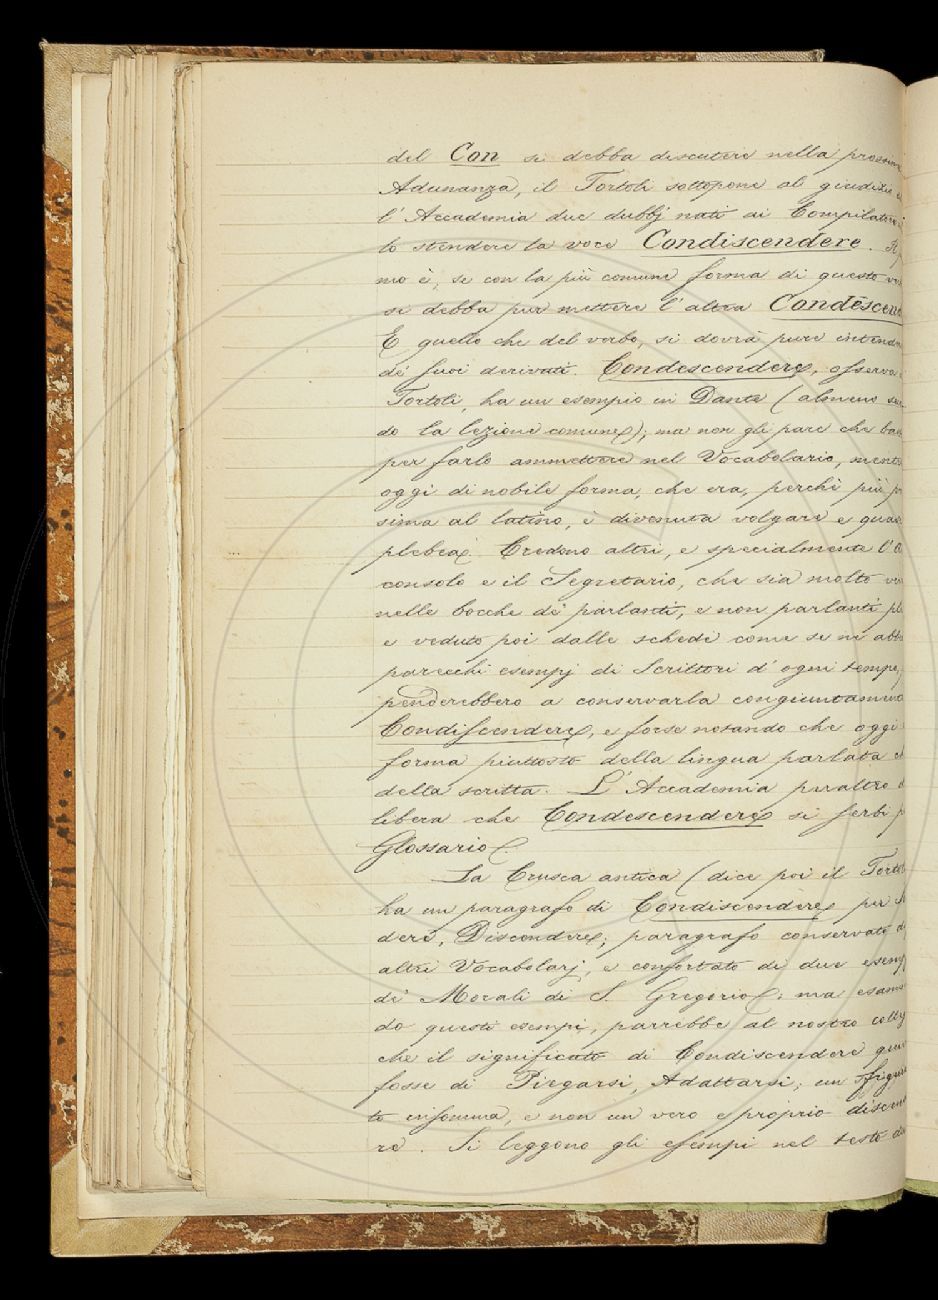 del Con si debba discutere nella prossim
Adunanza, il Tortoli sottopone al giudizio
l'Accademia due dubbj nati ai Compilatori
to stendere la voce Condiscendere.
mo è, se con la più comune forma di questo
si debba pur mettere l'altra Condescen
E quello che del verbo, si dovrà pure intende
de' suoi derivati. Condescendere, osserva
Tortoli, ha un esempio in Dante (almeno
do la lezione comune); ma non gli pare che bas
per farlo ammettere nel Vocabolario, mentre
oggi di nobile forma, che era, perchè più
sima al latino, è divenuta volgare e quasi
plebea. Credono altri, e specialmente l'
consolo e il Segretario, che sia molto
nelle bocche de' parlanti, e non parlanti
e veduto poi dalle schede come se ne abb
parecchi esempj di Scrittori d'ogni tempo,
penderebbero a conservarla congiuntamen
Condiscendere, e forse notando che oggi
forma piuttosto della lingua parlata
della scritta. L'Accademia peraltro
libera che Condescendere si serbi
Glossario.
La Crusca antica (dice poi il Tortol
ha un paragrafo di Condiscendere per
dere, Discendere; paragrafo conservato
altri Vocabolarj, e confortato di due esemp
de' Morali di S. Gregorio; ma esami
do questi esempi, parrebbe al nostro
che il significato di Condiscendere
fosse di Piegarsi, Adattarsi; un figura
to insomma, e non un vero e proprio discen
re. Si leggono gli esempi nel testo